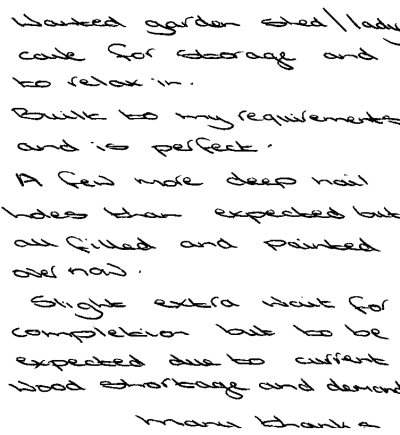 Wanted garden shed/lady
cave for storage and
to relax in.
Built to my requirements
and is perfect.
A few more deep nail
holes than expected but
all filled and painted
over now.
Slight extra wait for
completion but to be
expected due to current
wood shortage and demand
Many thanks